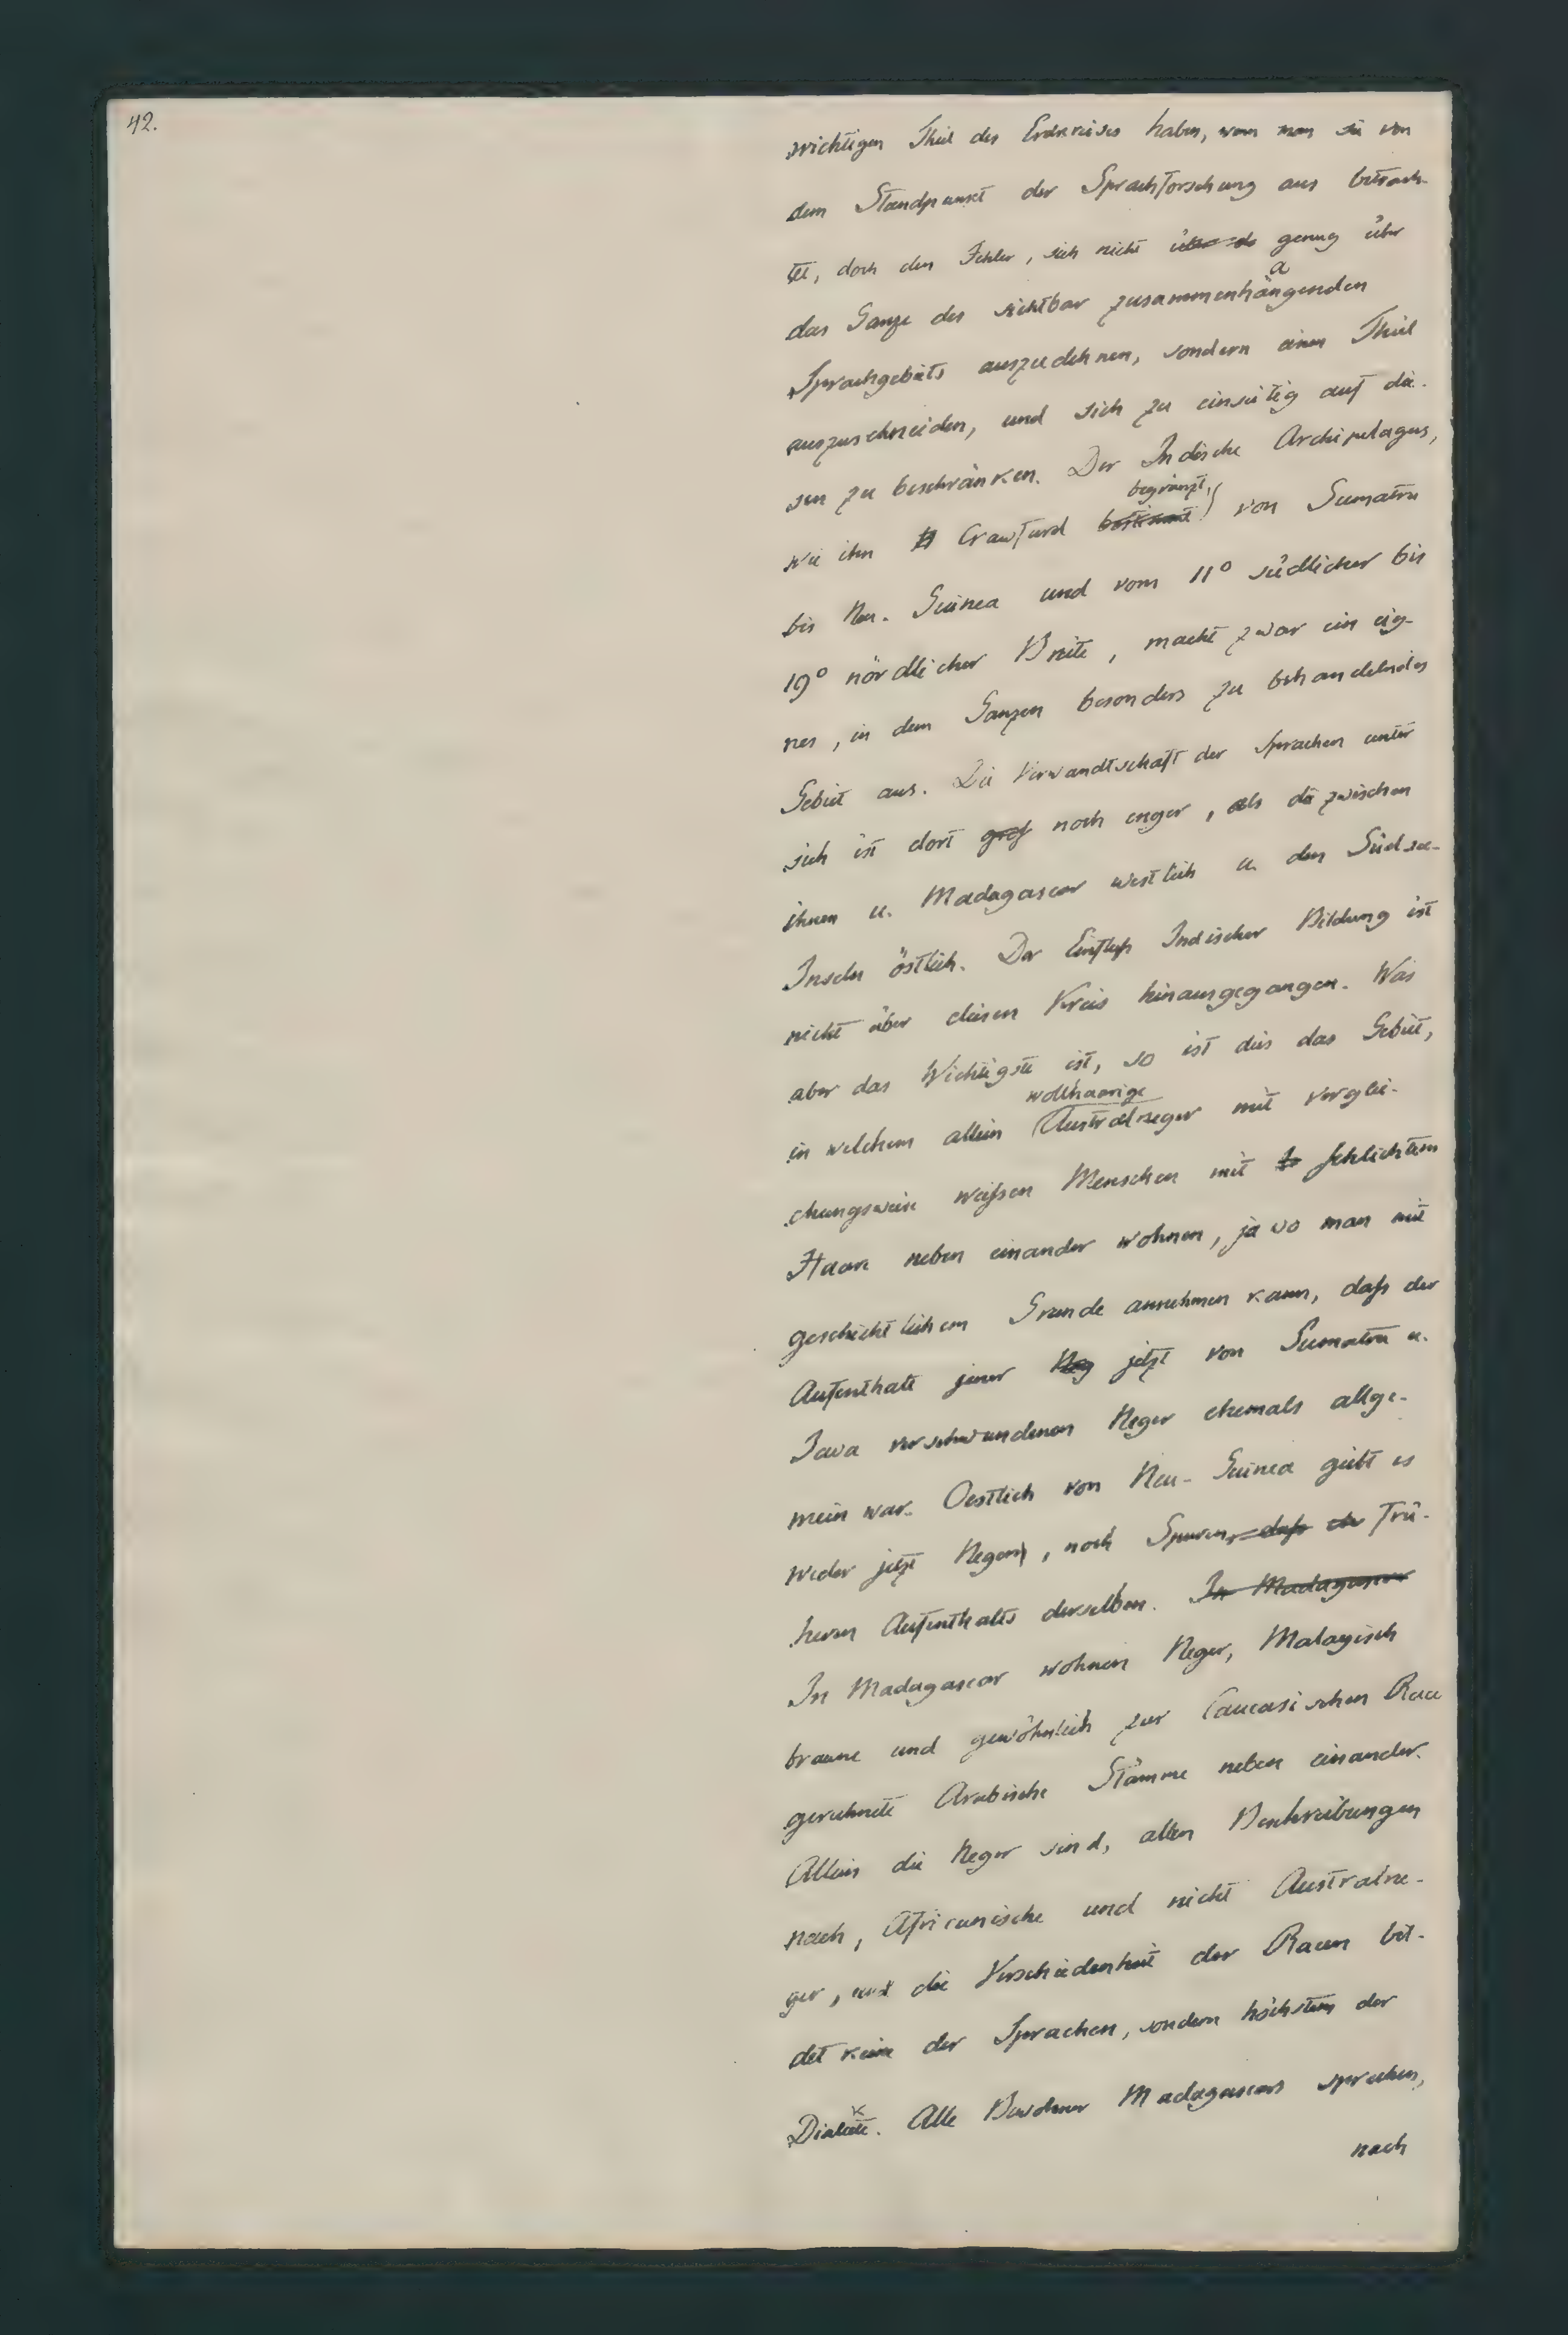 42.
wichtigen Theil des Erdkreises haben, wenn man sie von
dem Standpunkt der Sprachforschung aus betrach-
tet, doch den Fehler, sich nicht genug über
das Ganze des sichtbar zusammenhängenden
Sprachgebiets auszudehnen, sondern einen Theil
auszuschneiden, und sich zu einseitig auf die-
sen zu beschränken. Der Indische Archipelagus,
wie ihn Crawfurd begränzt, von Sumatra
bis Neu-Guinea und vom 11° südlicher bis
19° nördlicher Breite, macht zwar ein eig-
nes, in dem Ganzen besonders zu behandelndes
Gebiet aus. Die Verwandtschaft der Sprachen unter
sich ist dort noch enger, als die zwischen
ihnen u. Madagascar westlich u. den Südsee-
Inseln östlich. Der Einfluß Indischer Bildung ist
nicht über diesen Kreis hinausgegangen. Was
aber das Wichtigste ist, so ist dies das Gebiet,
in welchem allein wollhaarige Australneger mit verglei-
chungsweise weißen Menschen mit schlichtem
Haare neben einander wohnen, ja wo man mit
geschichtlichem Grunde annehmen kann, daß der
Aufenthalt jener jetzt von Sumatra u.
Java verschwundenen Neger ehemals allge-
mein war. Oestlich von Neu-Guinea giebt es
weder jetzt Neger, noch Spuren frü-
heren Aufenthalts derselben. In Madagascar
In Madagascar wohnen Neger, Malayisch
braune und gewöhnlich zur Caucasischen Race
gerechnete Arabische Stämme neben einander.
Allein die Neger sind, allen Beschreibungen
nach, Africanische und nicht Australne-
ger, und die Verschiedenheit der Racen bil-
det keine der Sprachen, sondern höchstens der
Dialekte. Alle Bewohner Madagascars sprechen,
nach